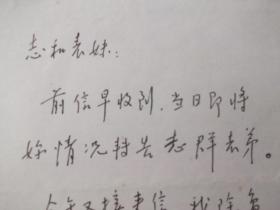 志和表妹：
前信早收到，当日即将
妳情况转告志群表弟。
今午又接来信，我除当